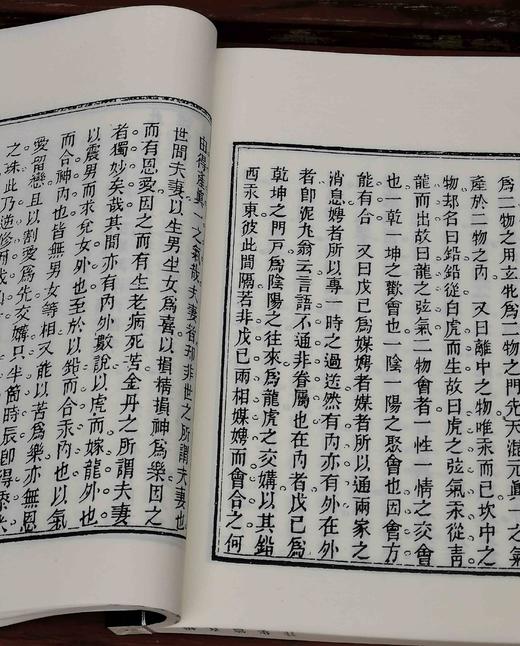 爲二物之用玄牝爲二物之門先天混元眞一之氣
產於二物之內又曰離中之物唯汞而已坎中之
物却名曰鉛鉛從白虎而生故曰虎之弦氣汞從靑
龍而出故曰龍之弦氣二物會者一性一情之交會
也一乾一坤之歡會也一陰一陽之聚會也因會方
能有合又曰戊己爲媒娉者媒者所以通兩家之
消息娉者所以專一時之過送然有內亦有外在外
者卽泥九翁云言語不通非眷屬也在內者戊己爲
乾坤之門戶爲陰陽之往來爲龍虎之交媾以其鉛
西汞東彼此間隔若非戊己兩相媒娉而會合之何
由得產眞一之氣哉夫妻者却非世之所謂夫妻也
世間夫妻以生男生女爲喜以損精損神爲樂因之
而有恩愛因之而有生老病死苦金丹之所謂夫妻
者獨妙矣哉其間亦有內外數說以虎而嫁龍外也
以震男而求兌女外也至於以鉛而合汞內也以氣
而合神內也皆無男女等相又能以苦爲樂亦無恩
愛留戀且以割愛爲先交媾只半箇時辰卽得黍米
之珠此乃逆修